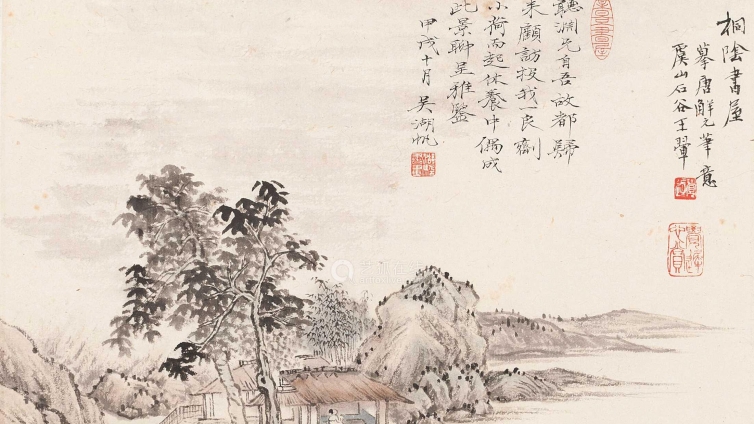 桐陰書屋
摹唐解元筆意
虞山石谷王翬
聽淵兄自吾故都歸
來顧訪投我一良劑
小荷而起休養中偶成
此景聊呈雅鑒
甲戌十月 吴湖帆